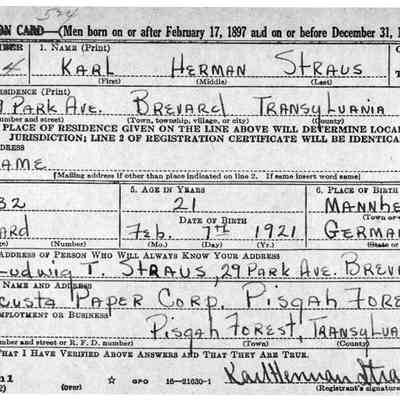 534
ON CARD—(Men born on or after February 17, 1897 and on or before December 31, 1
MBER 1. NAME (Print)
4 KARL HERMAN STRAUS
(First) (Middle) (Last)
RESIDENCE (Print)
9 PARK AVE. BREVARD TRANSYLVANIA
(Number and street) (Town, township, village, or city) (County)
PLACE OF RESIDENCE GIVEN ON THE LINE ABOVE WILL DETERMINE LOCA
JURISDICTION; LINE 2 OF REGISTRATION CERTIFICATE WILL BE IDENTICA
ADDRESS
SAME
[Mailing address if other than place indicated on line 2. If same insert word same]
5. AGE IN YEARS 6. PLACE OF BIRTH
32 21 MANNHE
DATE OF BIRTH (Town or
ARD Feb. 7TH 1921 GERMAN
(Number) (Mo.) (Day) (Yr.) (State or
ADDRESS OF PERSON WHO WILL ALWAYS KNOW YOUR ADDRESS
Ludwig T. STRAUS, 29 PARK AVE. BREV
NAME AND ADDRESS
CUSTA PAPER CORP. PISGAH FORE
EMPLOYMENT OR BUSINESS
PISGAH FOREST, TRANSYLVA
(Number and street or R. F. D. number) (Town) (County)
THAT I HAVE VERIFIED ABOVE ANSWERS AND THAT THEY ARE TRUE.
(over) ☆ GPO 16—21630-1 Karl Herman Stra
(Registrant's signature